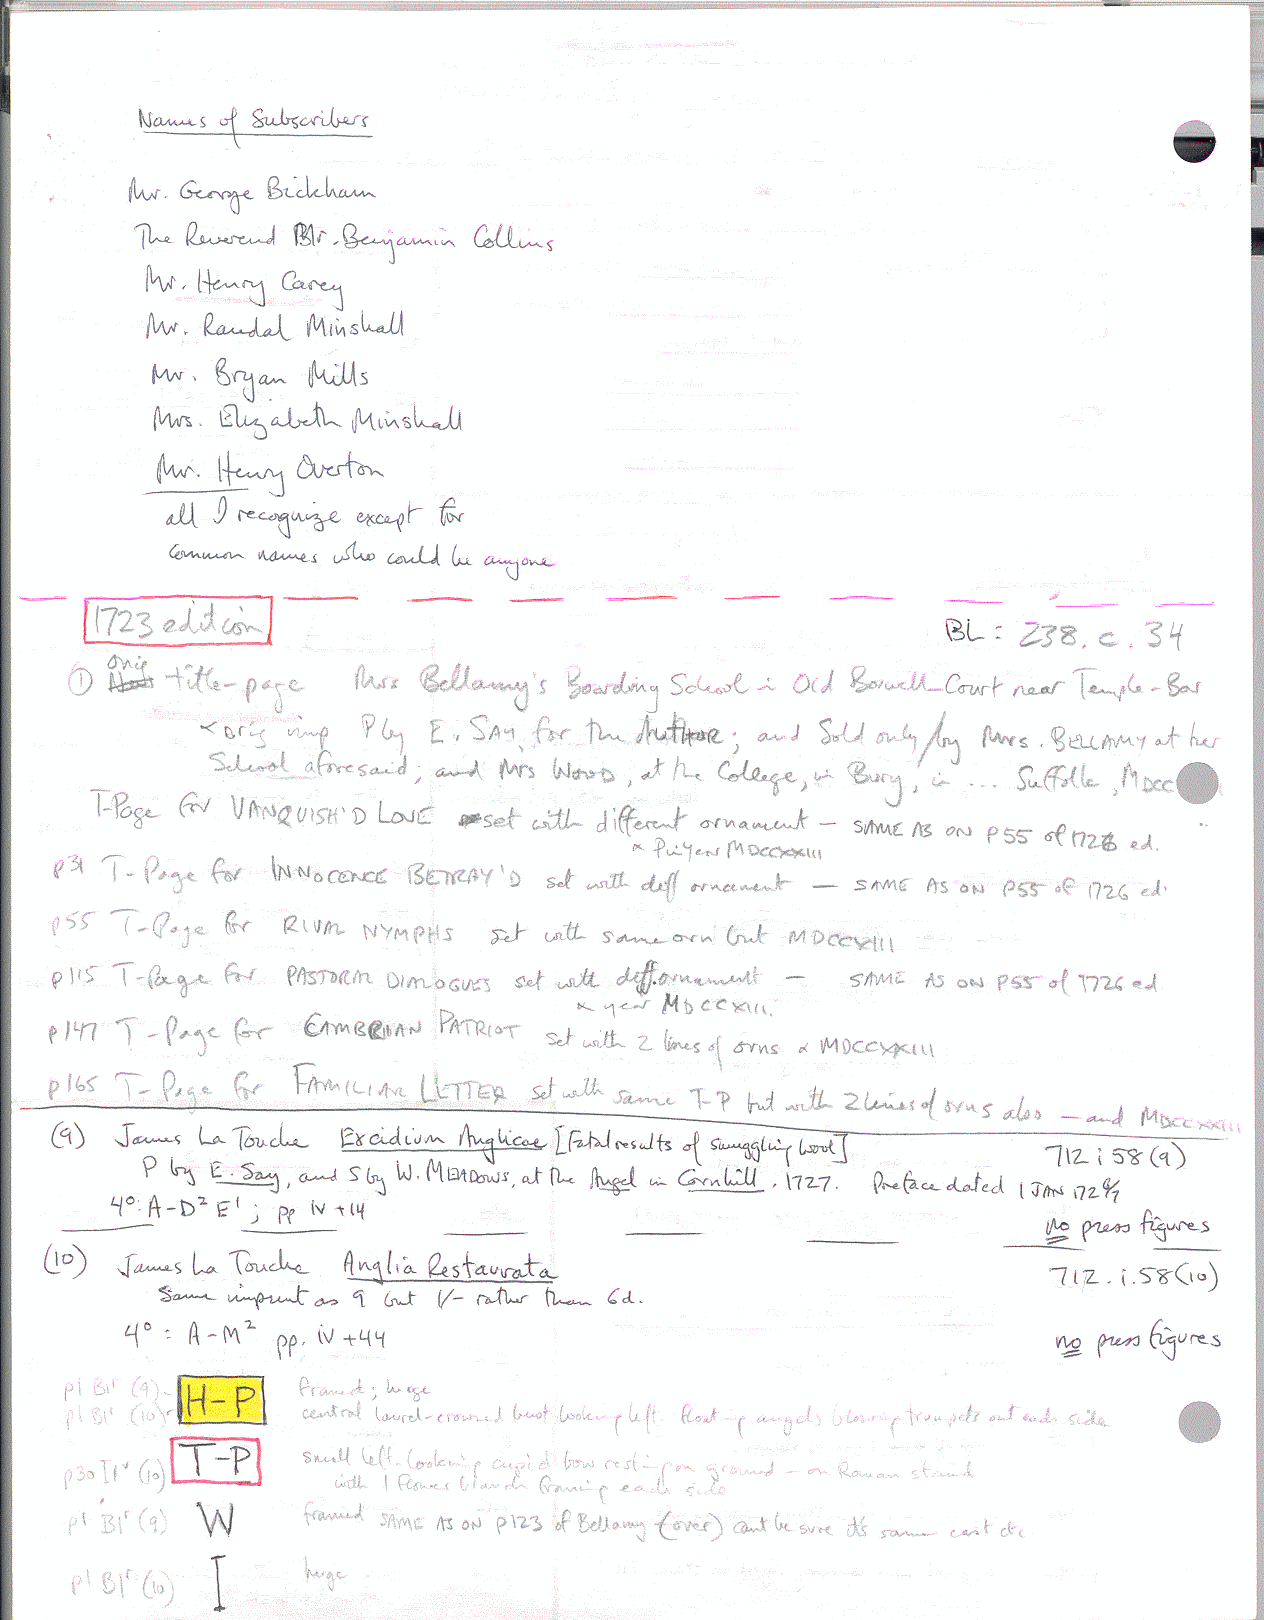 Names of Subscribers
Mr. George Bickham
The Reverend Mr. Benjamin Collins
Mr. Henry Carey
Mr. Randal Minshall
Mr. Bryan Mills
Mrs. Elizabeth Minshall
Mr. Henry Overton
all I recognize except for
common names who could be anyone
1723 edition
BL: 238.c.34
① orig title-page Mrs Bellamy's Boarding School in Old Boswell-Court near Temple-Bar
& orig imp P by E. SAY, for the AUTHOR; and Sold only by Mrs. BELLAMY at her
School aforesaid; and Mrs WOOD, at the College, in Bury, in ... Suffolk, MDCC
T-Page for VANQUISH'D LOVE set with different ornament – SAME AS ON P55 of 1726 ed.
MDCCXXIII
p31 T-Page for INNOCENCE BETRAY'D set with diff ornament – SAME AS ON P55 of 1726 ed.
p55 T-Page for RIVAL NYMPHS set with same orn but MDCCXIII
p115 T-Page for PASTORAL DIALOGUES set with diff. ornament – SAME AS ON P55 of 1726 ed
& year MDCCXIII.
p147 T-Page for CAMBRIAN PATRIOT set with 2 lines of orns & MDCCXXIII
p165 T-Page for FAMILIAR LETTER set with same T-P but with 2 lines of orns also – and MDCCXXIII
(9) James La Touche Excidium Angliae [Fatal results of smuggling wool] 712 i 58 (9)
P by E. Say, and S by W. MEADOWS, at the Angel in Cornhill. 1727. Preface dated 1 JAN 1726/7
4°: A-D² E¹; pp iv +14
no press figures
(10) James La Touche Anglia Restaurata 712.i.58(10)
Same imprint as 9 but 1/- rather than 6d.
4°: A-M² pp. iv +44 no press figures
p1 B1r (9) H-P framed; huge
p1 B1r (10) central laurel-crowned bust looking left. floating angels blowing trumpets out each side
p30 I1v (10) T-P small left-looking cupid bow resting on ground – on Roman stand
with 1 flower branch framing each side
p1 B1r (9) W framed SAME AS ON p123 of Bellamy (over) cant be sure it's same cast etc
p1 B1r (10) I huge